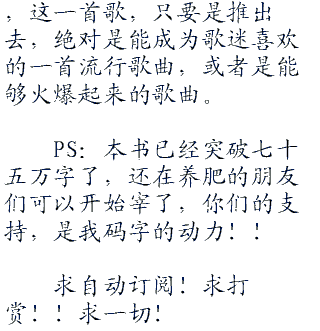 ，这一首歌，只要是推出
去，绝对是能成为歌迷喜欢
的一首流行歌曲，或者是能
够火爆起来的歌曲。
PS：本书已经突破七十
五万字了，还在养肥的朋友
们可以开始宰了，你们的支
持，是我码字的动力！！
求自动订阅！求打
赏！！求一切！